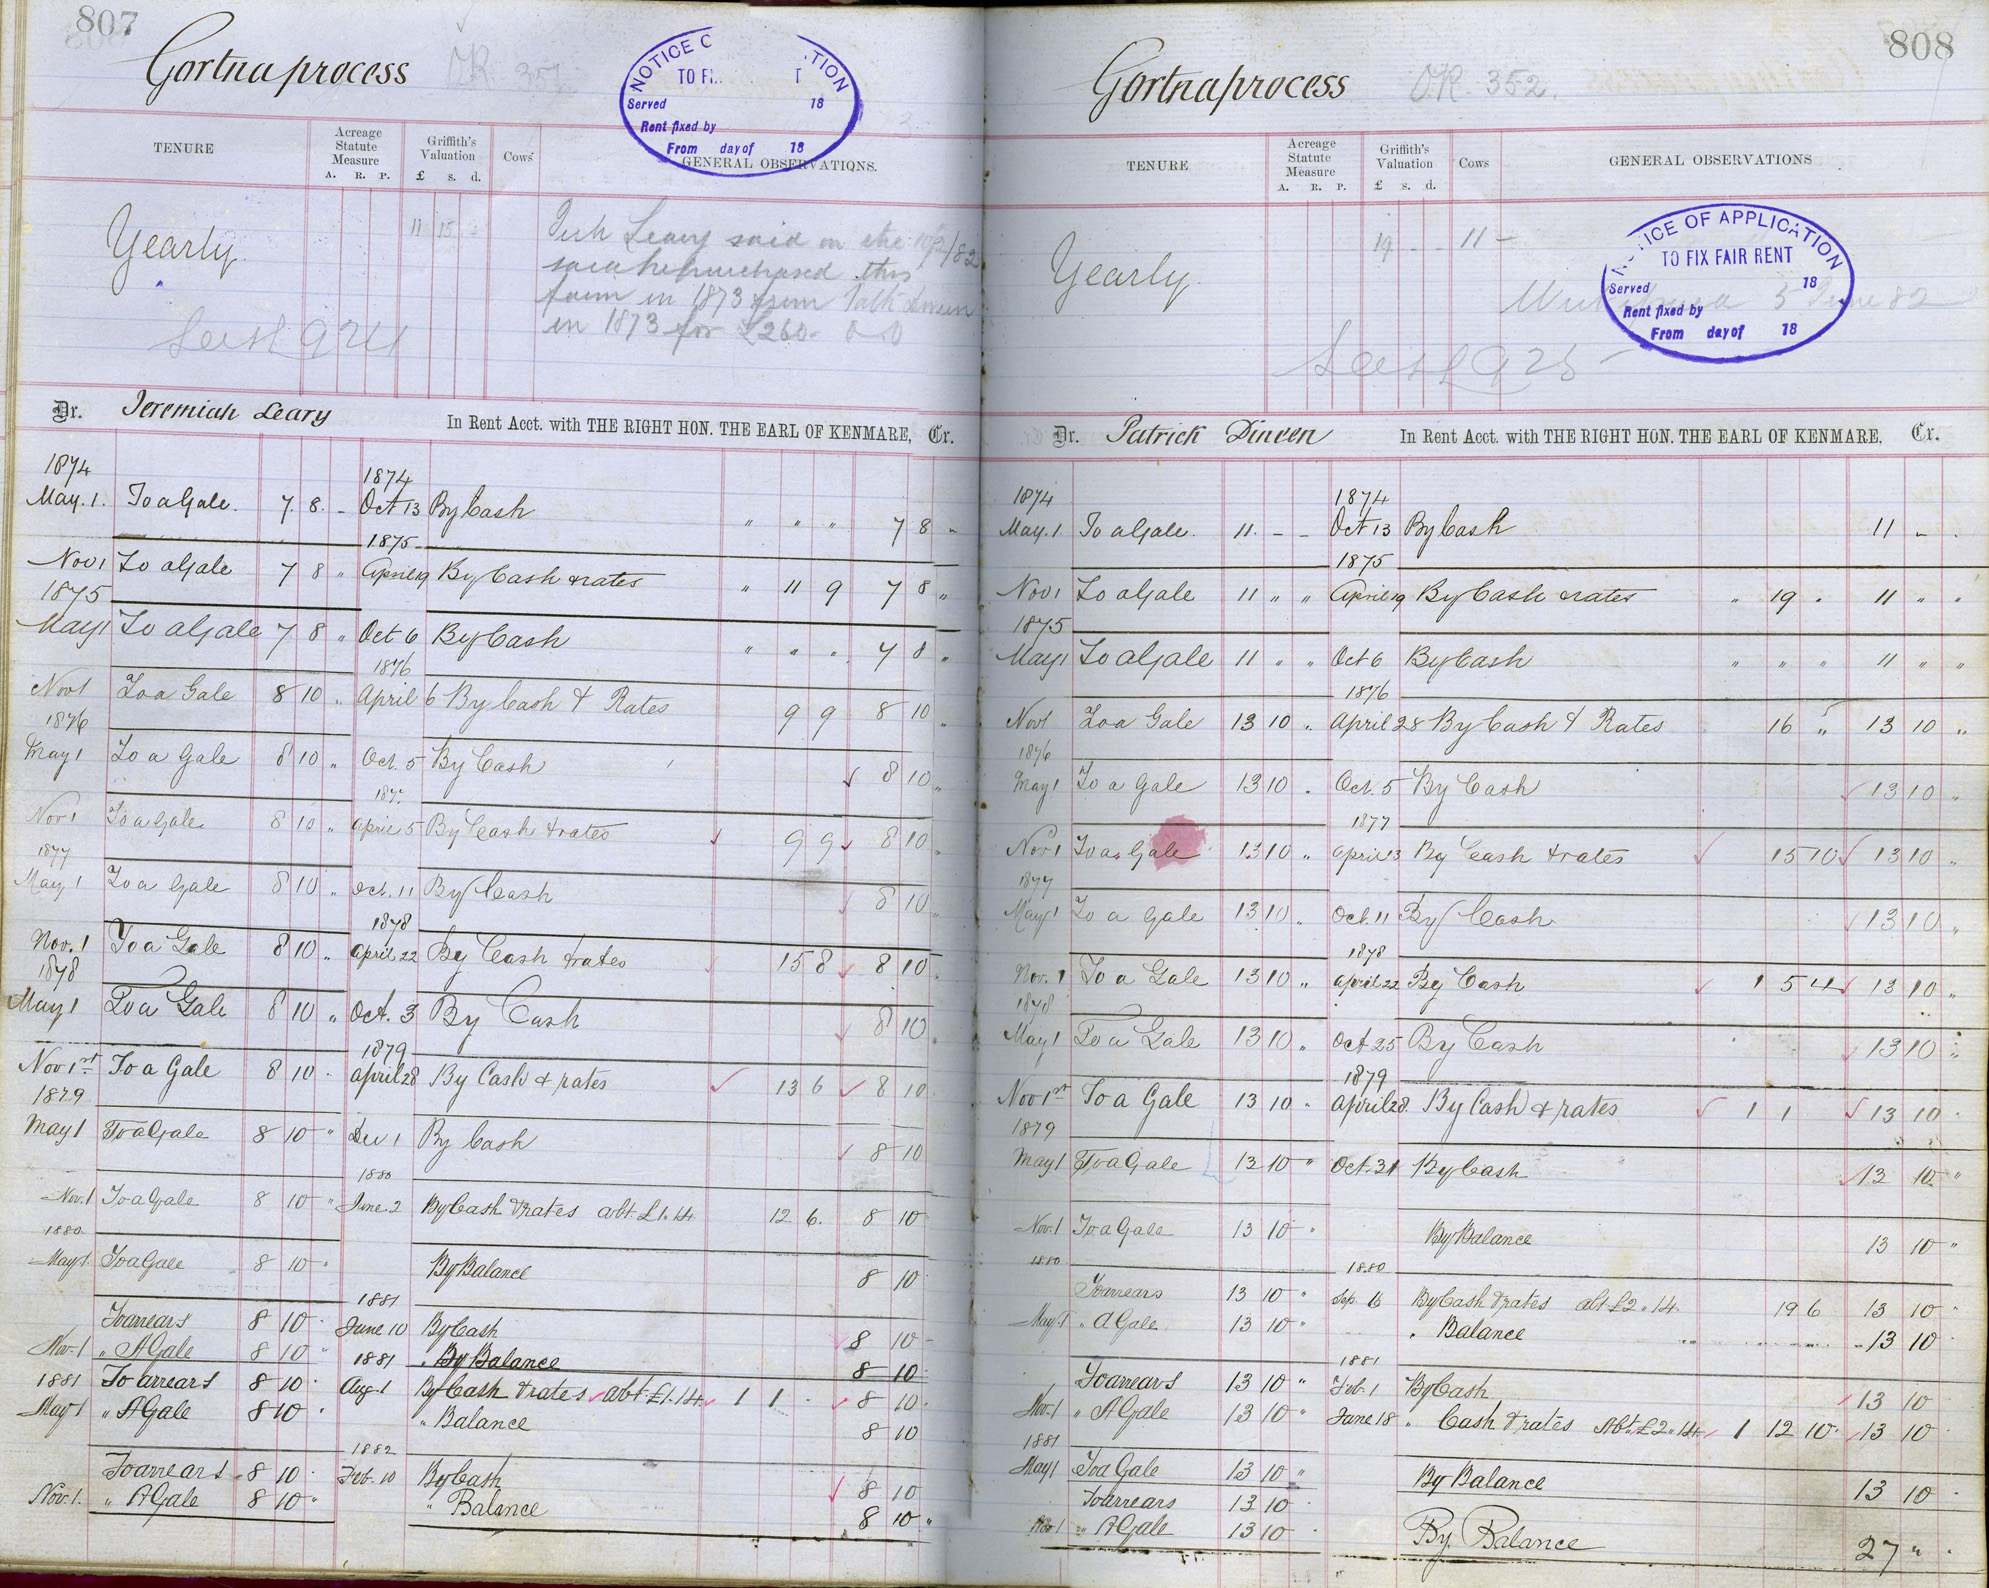 807
Gortnaprocess O.R. 351
NOTICE O TION
TO FI T
Served 18
Rent fixed by
From day of 18
TENURE
Acreage Statute Measure
A. R. P.
Griffith's Valuation
£ s. d.
Cows
GENERAL OBSERVATIONS.
Yearly
11 15
Leary said on the 10/2/82
said he purchased this
farm in 1873 from
in 1873 for £260
924
Dr. Jeremiah Leary In Rent Acct. with THE RIGHT HON. THE EARL OF KENMARE, Cr.
1874 1874
May. 1. To a Gale. 7. 8. - Oct 13 By Cash " " " 7 8 "
1875
Nov 1 To a Gale 7 8 " April 19 By Cash & rates " 11 9 7 8 "
1875
May 1 To a Gale 7 8 " Oct 6 By Cash " " " 7 8 "
1876
Nov 1 To a Gale 8 10 " April 6 By Cash & Rates 9 9 8 10 "
1876
May 1 To a Gale 8 10 " Oct. 5 By Cash 8 10 "
187
Nov 1 To a Gale. 8 10 " April 5 By Cash & rates 9 9 8 10 "
1877
May 1 To a Gale 8 10 " Oct. 11 By Cash 8 10 "
1878
Nov. 1 To a Gale 8 10 " April 22 By Cash & rates 15 8 8 10 "
1878
May 1 To a Gale 8 10 " Oct. 3 By Cash 8 10 "
1879
Nov 1st To a Gale 8 10 " April 28 By Cash & rates 13 6 8 10
1879
May 1 To a Gale 8 10 " Dec 1 By Cash 8 10
1880
Nov. 1 To a Gale 8 10 " June 2 By Cash & rates abt. £1.14 12 6. 8 10
1880
May 1. To a Gale 8 10 " By Balance 8 10
1881
To arrears 8 10 June 10 By Cash 8 10
Nov. 1 " A Gale 8 10 " 1881 " By Balance 8 10
1881 To arrears 8 10 Aug. 1 By Cash & rates abt. £1.14. 1 1 8 10
May 1 " A Gale 8 10 " Balance 8 10
1882
To arrears 8 10 Feb. 10 By Cash 8 10
Nov. 1. " A Gale 8 10 " " Balance 8 10 "
808
Gortnaprocess O.R. 352.
TENURE
Acreage Statute Measure
A. R. P.
Griffith's Valuation
£ s. d.
Cows
GENERAL OBSERVATIONS
NOTICE OF APPLICATION
TO FIX FAIR RENT
Served 18
Rent fixed by
From day of 18
Yearly
19 - - 11 -
5 June 82
925
Dr. Patrick Dineen In Rent Acct. with THE RIGHT HON. THE EARL OF KENMARE, Cr.
1874 1874
May. 1. To a Gale. 11. - - Oct 13 By Cash 11 - .
1875
Nov 1 To a Gale 11 " " April 19 By Cash & rates " 19 " 11 " "
1875
May 1 To a Gale 11 " " Oct 6 By Cash " " " 11 " "
1876
Nov 1 To a Gale 13 10 " April 28 By Cash & Rates 16 " 13 10 "
1876
May 1 To a Gale 13 10 . Oct. 5 By Cash 13 10 "
1877
Nov 1 To a Gale 13 10 " April 13 By Cash & rates 15 10 13 10 "
1877
May 1 To a Gale 13 10 " Oct. 11 By Cash 13 10 "
1878
Nov. 1 To a Gale 13 10 " April 22 By Cash 1 5 4 13 10 "
1878
May 1 To a Gale 13 10 " Oct 25 By Cash 13 10 "
1879
Nov 1st To a Gale 13 10 " April 28. By Cash & rates 1 1 13 10 .
1879
May 1 To a Gale 13 10 " Oct. 31 By Cash 13 10 "
Nov. 1 To a Gale 13 10 " By Balance 13 10 "
1880 1880
To arrears 13 10 " Sep. 16 By Cash & rates abt £2.14 19 6 13 10 "
May 1 " A Gale 13 10 " " Balance 13 10
1881
To arrears 13 10 " Feb. 1 By Cash 13 10
Nov. 1 " A Gale 13 10 " June 18 " Cash & rates Abt. £2.14. 1 12 10. 13 10
1881
May 1 To a Gale 13 10 " By Balance 13 10
To arrears 13 10
Nov 1 " A Gale 13 10 By Balance 27 "